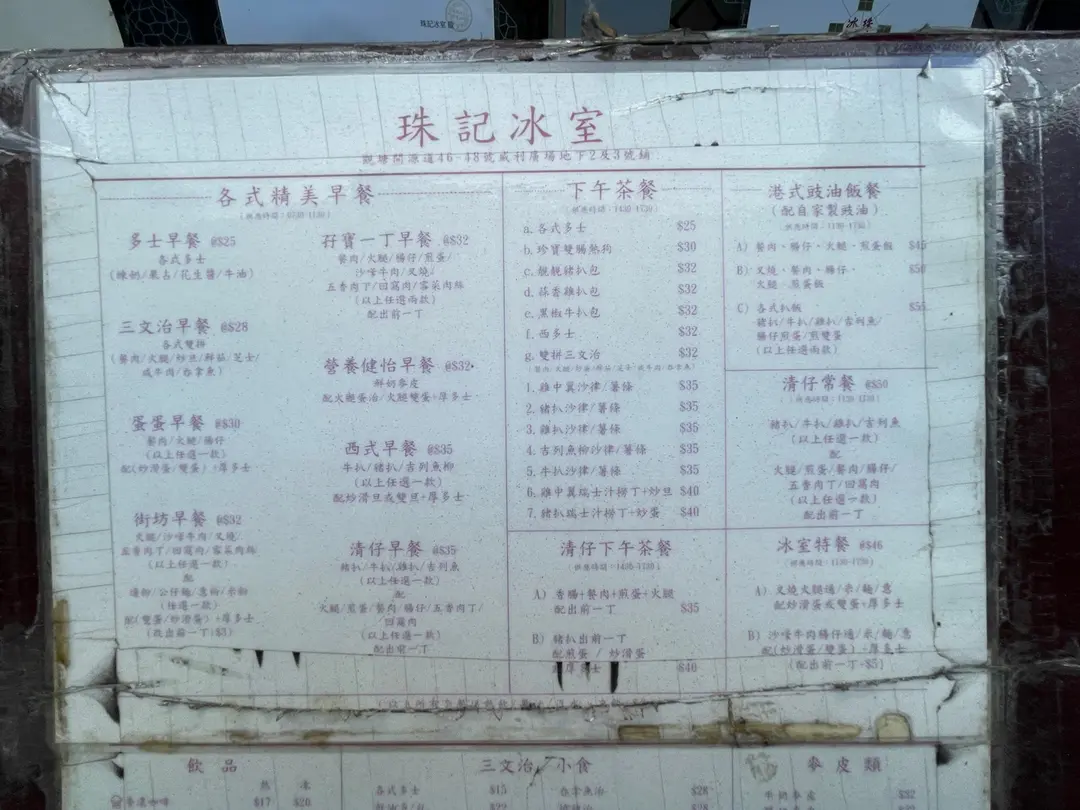 珠記冰室
觀塘開源道46-48號威利廣場地下2及3號舖
各式精美早餐
多士早餐 @$25
各式多士
(煉奶/果占/花生醬/牛油)
三文治早餐 @$28
各式雙拼
(餐肉/火腿/炒旦/鮮茄/芝士/
咸牛肉/吞拿魚)
蛋蛋早餐 @$30
餐肉/火腿/腸仔
(以上任選一款)
配(炒滑蛋/雙蛋)+厚多士
街坊早餐 @$32
火腿/沙嗲牛肉/叉燒/
五香肉丁/回窩肉/雪菜肉絲
(以上任選一款)
配
通粉/公仔麵/意粉/米粉
(任選一款)
配(雙蛋/炒滑蛋)+厚多士
(改出前一丁+$3)
孖寶一丁早餐 @$32
餐肉/火腿/腸仔/煎蛋/
沙嗲牛肉/叉燒/
五香肉丁/回窩肉/雪菜肉絲
(以上任選兩款)
配出前一丁
營養健怡早餐 @$32
鮮奶麥皮
配火腿蛋治/火腿雙蛋+厚多士
西式早餐 @$35
牛扒/豬扒/吉列魚柳
(以上任選一款)
配炒滑旦或雙旦+厚多士
清仔早餐 @$35
豬扒/牛扒/雞扒/吉列魚
(以上任選一款)
配
火腿/煎蛋/餐肉/腸仔/五香肉丁/
回窩肉
(以上任選一款)
配出前一丁
下午茶餐
a. 各式多士 $25
b. 珍寶雙腸熱狗 $30
c. 靚靚豬扒包 $32
d. 蒜香雞扒包 $32
e. 黑椒牛扒包 $32
f. 西多士 $32
g. 雙拼三文治 $32
1. 雞中翼沙律/薯條 $35
2. 豬扒沙律/薯條 $35
3. 雞扒沙律/薯條 $35
4. 吉列魚柳沙律/薯條 $35
5. 牛扒沙律/薯條 $35
6. 雞中翼瑞士汁撈丁+炒旦 $40
7. 豬扒瑞士汁撈丁+炒蛋 $40
清仔下午茶餐
A) 香腸+餐肉+煎蛋+火腿
配出前一丁 $35
B) 豬扒出前一丁
配煎蛋 / 炒滑蛋
厚多士 $40
港式豉油飯餐
(配自家製豉油)
A) 餐肉、腸仔、火腿、煎蛋飯 $45
B) 叉燒、餐肉、腸仔、 $50
火腿 煎蛋飯
C) 各式扒飯 $55
豬扒/牛扒/雞扒/吉列魚/
腸仔煎蛋/煎雙蛋
(以上任選兩款)
清仔常餐 @$50
豬扒/牛扒/雞扒/吉列魚
(以上任選一款)
配
火腿/煎蛋/餐肉/腸仔/
五香肉丁/回窩肉
(以上任選一款)
配出前一丁
冰室特餐 @$46
A) 叉燒火腿通/米/麵/意
配炒滑蛋或雙蛋+厚多士
B) 沙嗲牛肉腸仔通/米/麵/意
配(炒滑蛋/雙蛋)+厚多士
(配出前一丁+$5)
飲品
熱 凍
香濃咖啡 $17 $20
三文治/小食
各式多士 $15
吞拿魚治 $28
麥皮類
$32